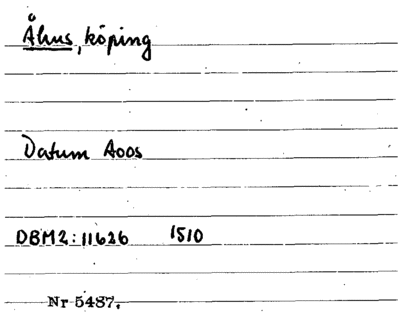 Åhus, köping
Datum Aoos
DBM2:11626 1510
Nr 5487.